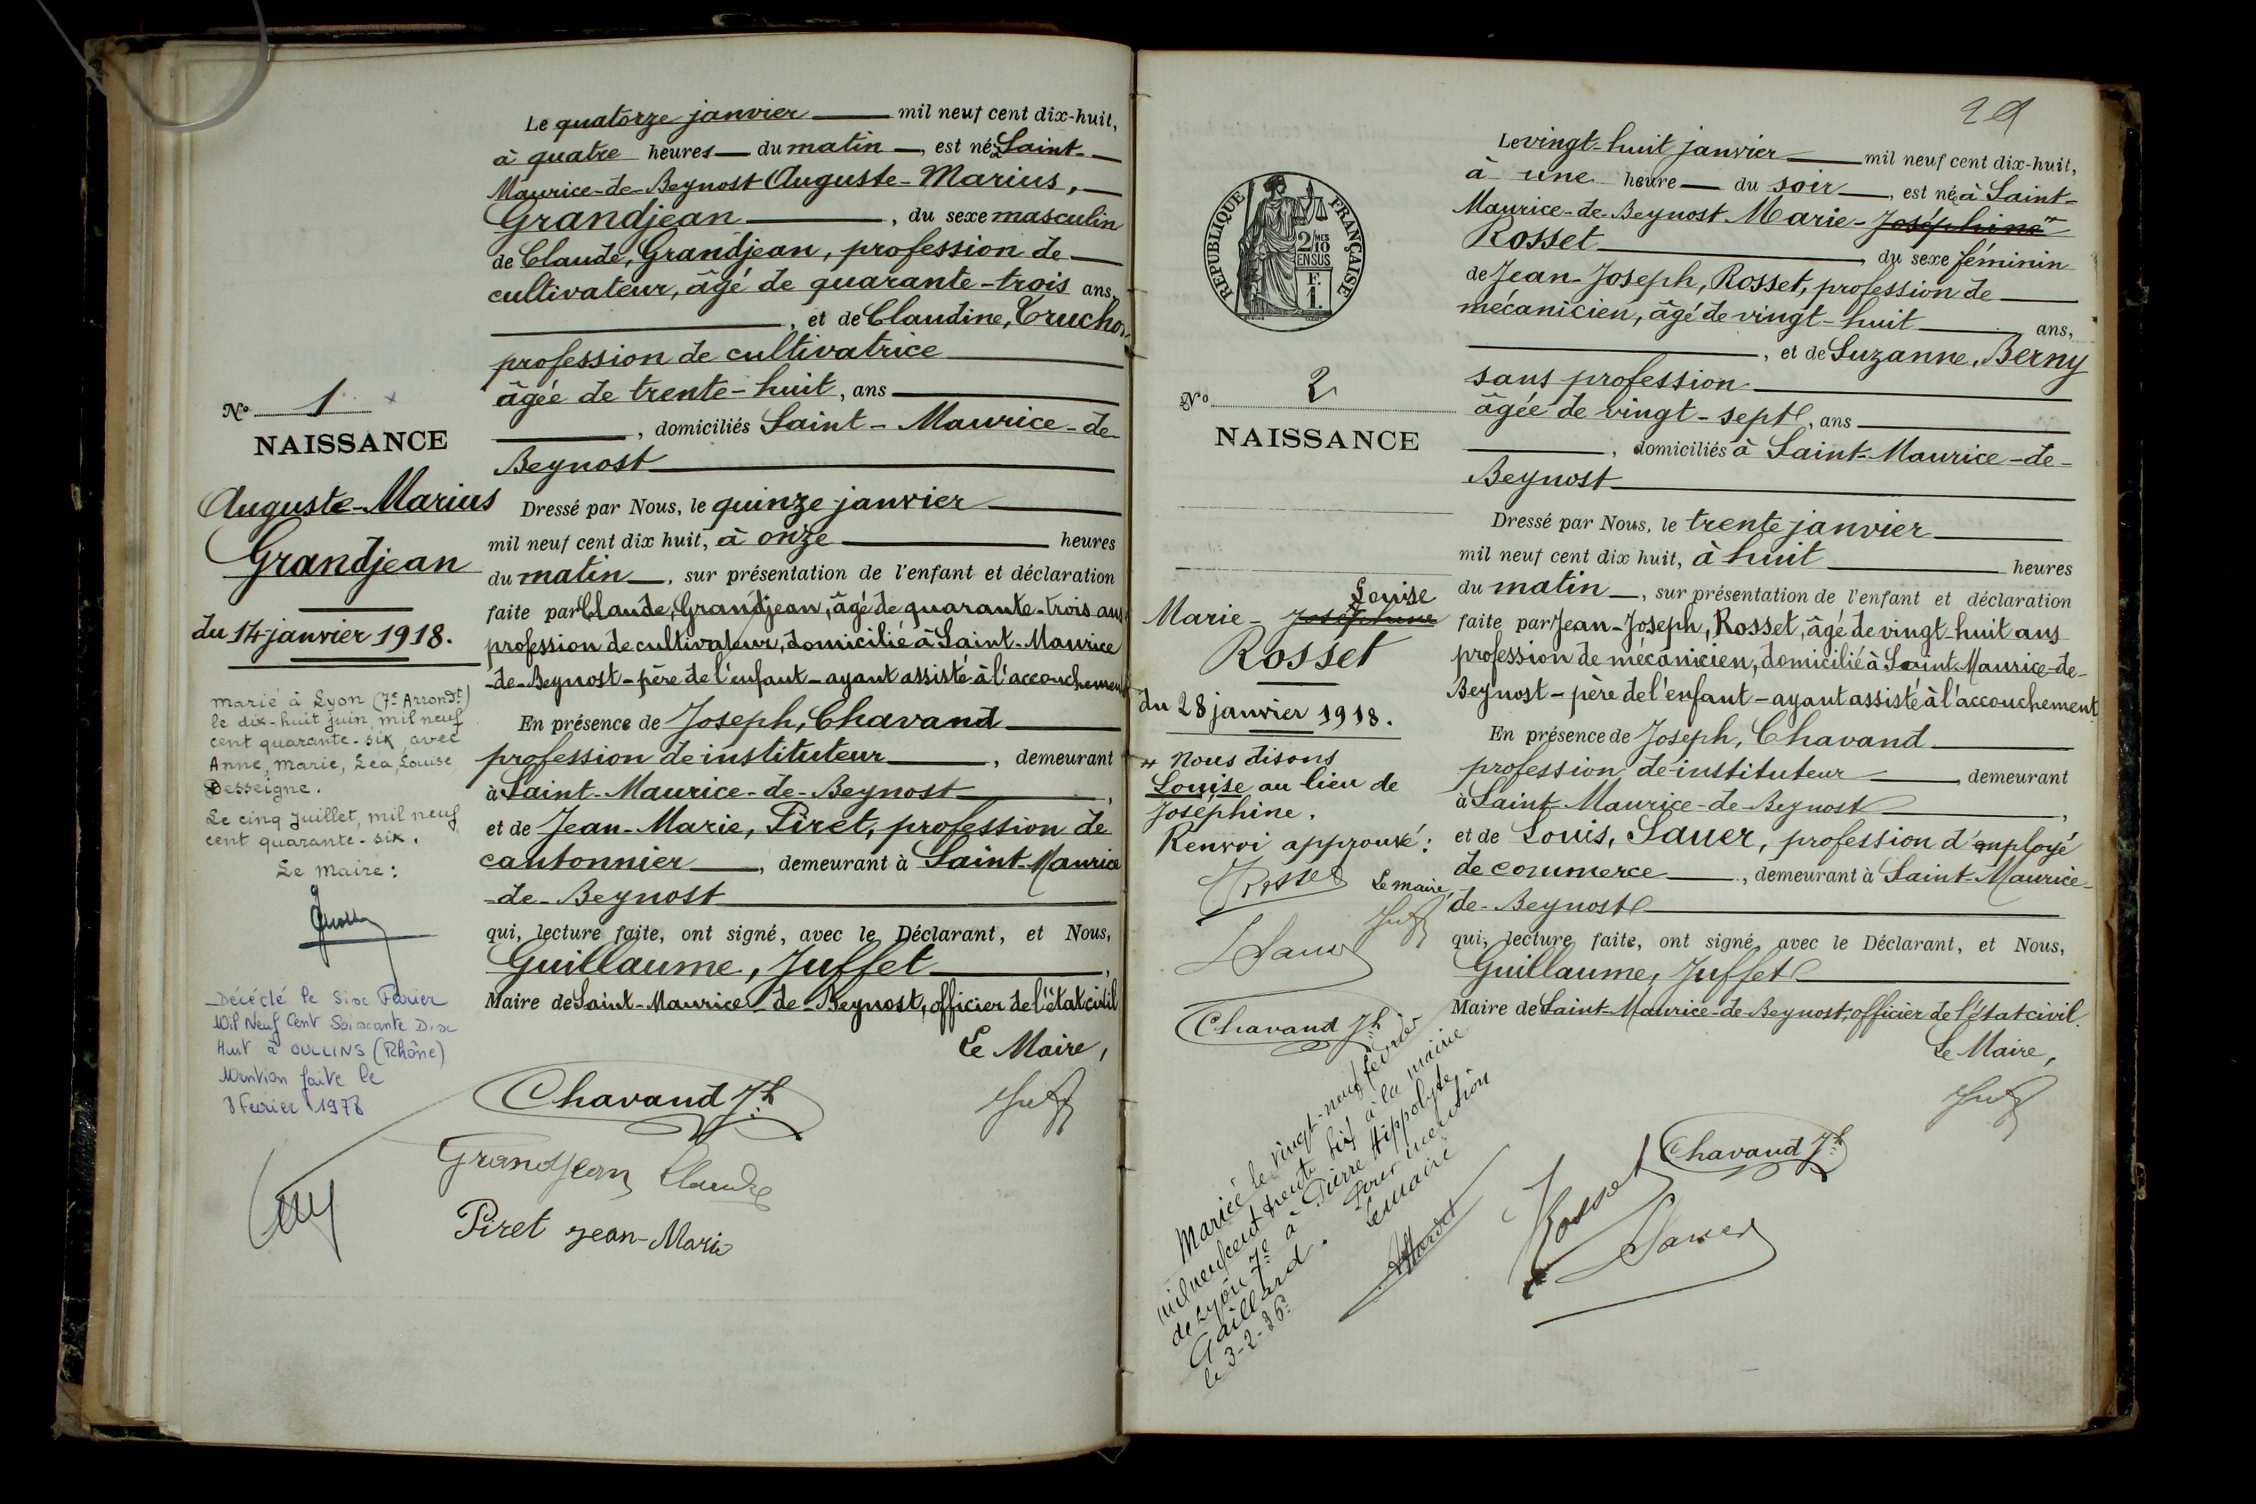 Le quatorze janvier mil neuf cent dix-huit,
à quatre heures du matin, est né à Saint-
Maurice-de-Beynost Auguste-Marius,
Grandjean, du sexe masculin
de Claude, Grandjean, profession de
cultivateur, âgé de quarante-trois ans,
, et de Claudine, Truchon
profession de cultivatrice
âgée de trente-huit, ans
, domiciliés Saint-Maurice-de-
Beynost
Dressé par Nous, le quinze janvier
mil neuf cent dix huit, à onze heures
du matin, sur présentation de l'enfant et déclaration
faite par Claude, Grandjean, âgé de quarante-trois ans
profession de cultivateur, domicilié à Saint-Maurice
-de-Beynost - père de l'enfant - ayant assisté à l'accouchement
En présence de Joseph, Chavand
profession de instituteur, demeurant
à Saint-Maurice-de-Beynost,
et de Jean-Marie, Piret, profession de
cantonnier, demeurant à Saint-Maurice
-de-Beynost
qui, lecture faite, ont signé, avec le Déclarant, et Nous,
Guillaume, Juffet,
Maire de Saint-Maurice-de-Beynost, officier de l'état civil
Le Maire,
Chavand Jh
Grandjean Claude
Piret Jean-Marie
No 1
NAISSANCE
Auguste-Marius
Grandjean
du 14 janvier 1918.
marié à Lyon (7e Arrondt)
le dix-huit juin, mil neuf
cent quarante-six, avec
Anne, Marie, Léa, Louise
Desseigne.
Le cinq Juillet, mil neuf
cent quarante-six.
Le Maire:
Décédé le Six Fevrier
Mil Neuf Cent Soixante Dix
Huit à OULLINS (Rhône)
Mention faite le
8 Fevrier 1978
29
RÉPUBLIQUE FRANÇAISE
2/10 MES
EN SUS
F.
1.
No 2
NAISSANCE
Louise
Marie-Joséphine
Rosset
du 28 janvier 1918.
" Nous disons
Louise au lieu de
Joséphine.
Renvoi approuvé:
Rosset
Le maire,
Sauer
Chavand Jh
Mariée le vingt-neuf février
mil neuf cent trente six à la mairie
de Lyon 7e à Pierre Hippolyte
Gaillard. Pour mention
le 3-2-36. Le Maire
Le vingt-huit janvier mil neuf cent dix-huit,
à une heure du soir, est née à Saint-
Maurice-de-Beynost Marie-Joséphine"
Rosset, du sexe féminin
de Jean-Joseph, Rosset, profession de
mécanicien, âgé de vingt-huit ans,
, et de Suzanne, Berny
sans profession
âgée de vingt-sept, ans
, domiciliés à Saint-Maurice-de-
Beynost
Dressé par Nous, le trente janvier
mil neuf cent dix huit, à huit heures
du matin, sur présentation de l'enfant et déclaration
faite par Jean-Joseph, Rosset, âgé de vingt-huit ans
profession de mécanicien, domicilié à Saint-Maurice-de-
Beynost - père de l'enfant - ayant assisté à l'accouchement
En présence de Joseph, Chavand
profession de instituteur, demeurant
à Saint-Maurice-de-Beynost,
et de Louis, Sauer, profession d'employé
de commerce, demeurant à Saint-Maurice-
de-Beynost
qui, lecture faite, ont signé, avec le Déclarant, et Nous,
Guillaume, Juffet
Maire de Saint-Maurice-de-Beynost, officier de l'état civil.
Le Maire,
Chavand Jh
Rosset
Sauer